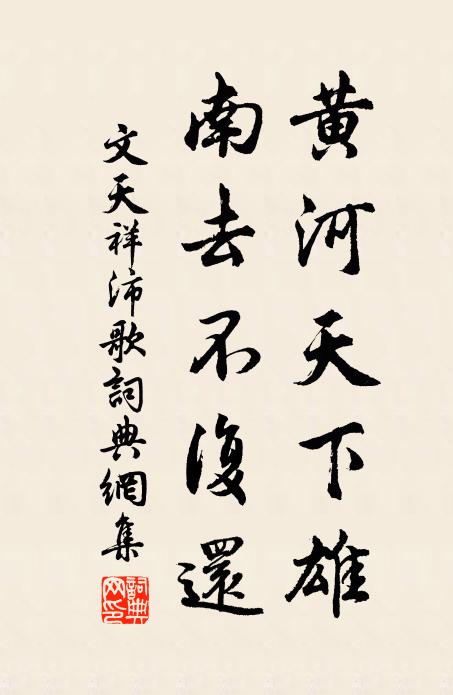 黄河天下雄
南去不復還
文天祥沛歌詞典網集
詞典網印